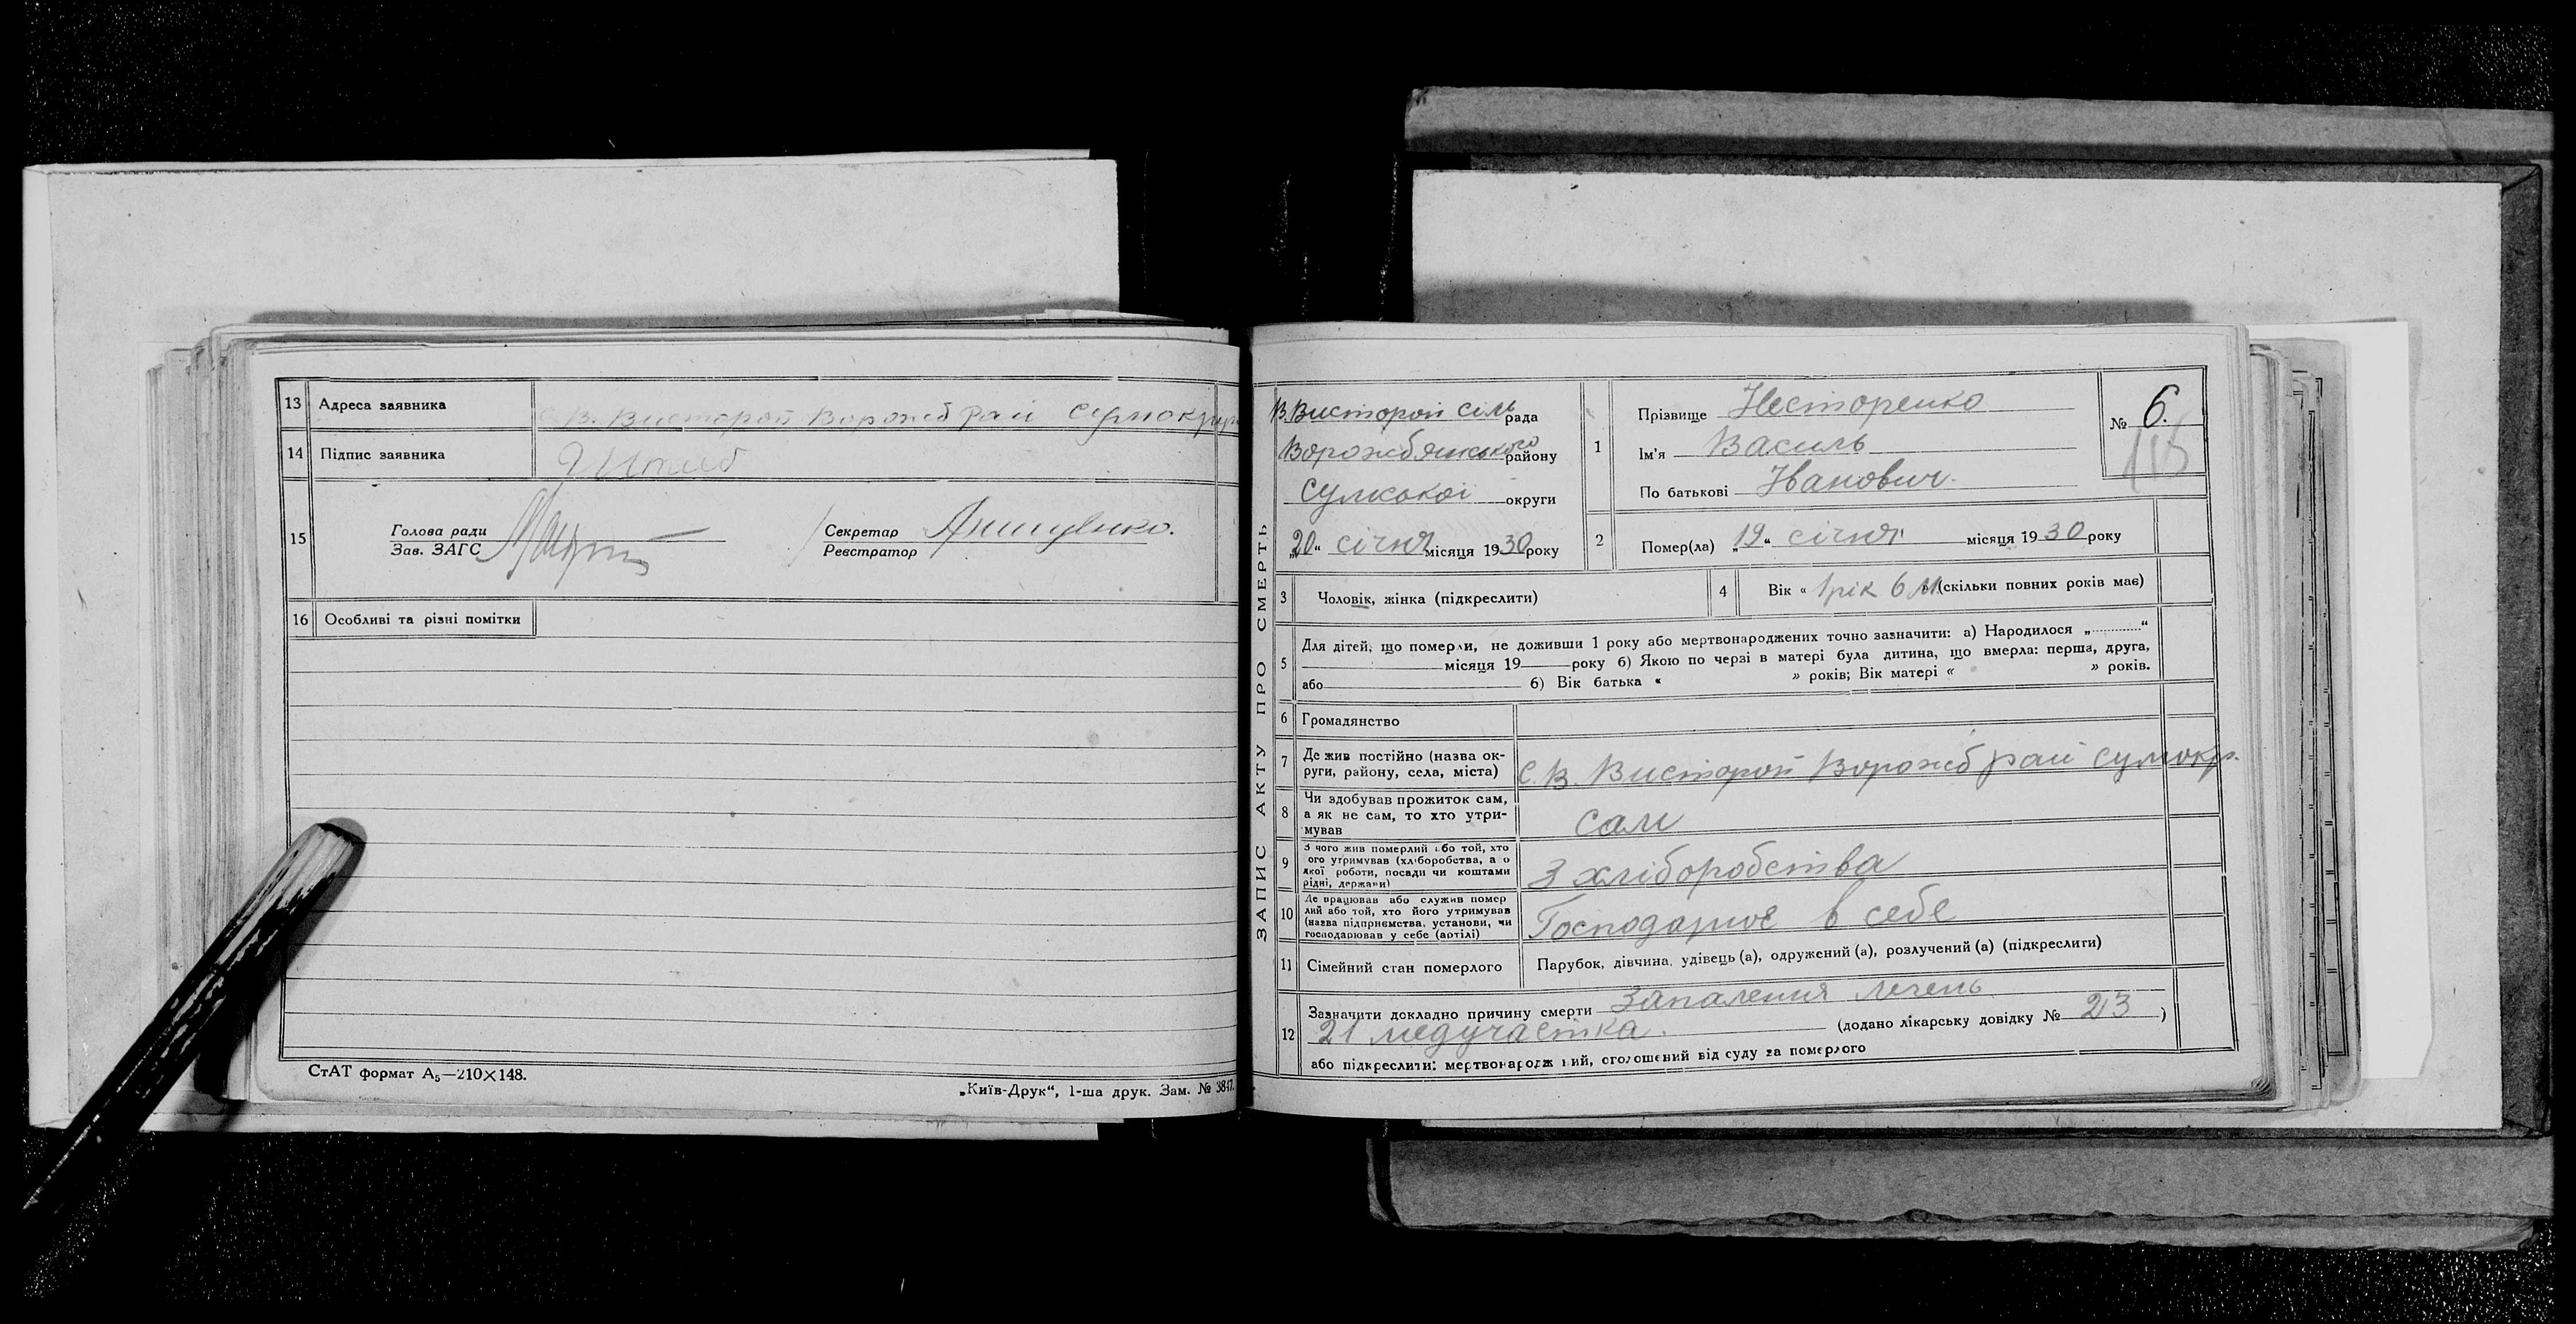 13 Адреса заявника В. Вистороп Ворожб рай Сумокруг
14 Підпис заявника
15 Голова ради
Зав. ЗАГС
Секретар Анищенко.
Реєстратор
16 Особливі та різні помітки
СтАТ формат А5—210×148.
„Київ-Друк“, 1-ша друк. Зам. № 3847.
ЗАПИС АКТУ ПРО СМЕРТЬ
В. Вистороп сіль рада
Ворожбянського району
Сумської округи
„20“ січня місяця 1930 року
1 Прізвище Несторенко
Ім'я Василь
По батькові Иванович
№ 6.
115
2 Помер(ла) „19“ січня місяця 1930 року
3 Чоловік, жінка (підкреслити)
4 Вік « 1 рік 6 м » (скільки повних років має)
5 Для дітей, що померли, не доживши 1 року або мертвонароджених точно зазначити: а) Народилося „.............“
місяця 19 року б) Якою по черзі в матері була дитина, що вмерла: перша, друга,
або б) Вік батька « » років; Вік матері « » років.
6 Громадянство
7 Де жив постійно (назва ок-
руги, району, села, міста) С. В. Вистороп Ворожб рай Сумокр.
8 Чи здобував прожиток сам,
а як не сам, то хто утри-
мував сам
9 З чого жив померлий або той, хто
ого утримував (хліборобства, а о
якої роботи, посади чи коштами
рідні, держави) З хліборобства
10 Де працював або служив помер
лий або той, хто його утримував
(назва підприємства, установи, чи
господарював у себе (артілі) Господарює в себе
11 Сімейний стан померлого Парубок, дівчина, удівець (а), одружений (а), розлучений (а) (підкреслити)
12 Зазначити докладно причину смерти Запалення легень
21 медучастка. (додано лікарську довідку № 213)
або підкреслити: мертвонародж ний, оголошений від суду за померлого